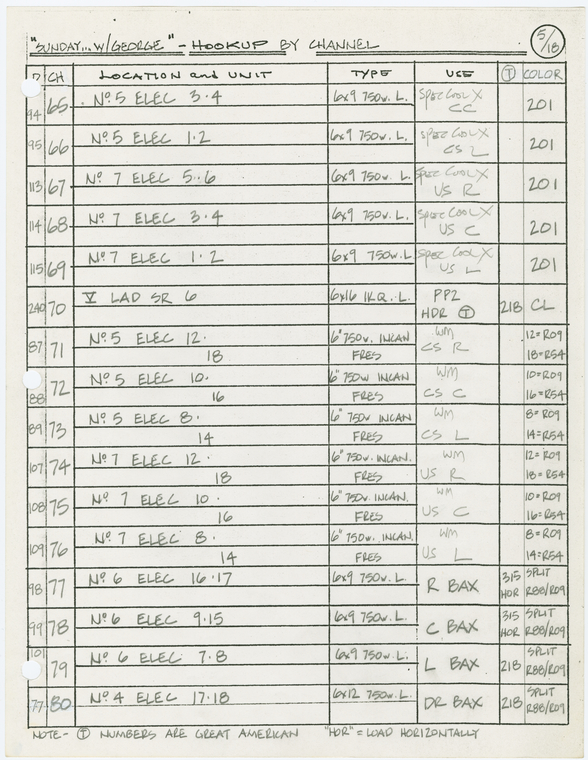 "SUNDAY... W/GEORGE" - HOOKUP BY CHANNEL 5/18
D CH LOCATION and UNIT TYPE USE T COLOR
94 65 Nº 5 ELEC 3·4 6x9 750w. L. SPEC COOL X CC 201
95 66 Nº 5 ELEC 1·2 6x9 750w. L. SPEC COOL X CS L 201
113 67 Nº 7 ELEC 5·6 6x9 750w. L. SPEC COOL X US R 201
114 68 Nº 7 ELEC 3·4 6x9 750w. L. SPEC COOL X US C 201
115 69 Nº 7 ELEC 1·2 6x9 750w. L. SPEC COOL X US L 201
240 70 V LAD SR 6 6x16 1K.Q. L. PP2 HDR T 218 CL
87 71 Nº 5 ELEC 12· 6" 750w. INCAN WM 12=R09
18 FRES CS R 18=R54
88 72 Nº 5 ELEC 10· 6" 750w INCAN WM 10=R09
16 FRES CS C 16=R54
89 73 Nº 5 ELEC 8· 6" 750w INCAN WM 8=R09
14 FRES CS L 14=R54
107 74 Nº 7 ELEC 12· 6" 750w. INCAN. WM 12=R09
18 FRES US R 18=R54
108 75 Nº 7 ELEC 10· 6" 750w. INCAN. WM 10=R09
16 FRES US C 16=R54
109 76 Nº 7 ELEC 8· 6" 750w. INCAN. WM 8=R09
14 FRES US L 14=R54
98 77 Nº 6 ELEC 16·17 6x9 750w. L. R BAX 315 HOR SPLIT R88/R09
99 78 Nº 6 ELEC 9·15 6x9 750w. L. C BAX 315 HOR SPLIT R88/R09
101 79 Nº 6 ELEC 7·8 6x9 750w. L. L BAX 218 SPLIT R88/R09
77 80 Nº 4 ELEC 17·18 6x12 750w. L. DR BAX 218 SPLIT R88/R09
NOTE- T NUMBERS ARE GREAT AMERICAN "HOR" = LOAD HORIZONTALLY